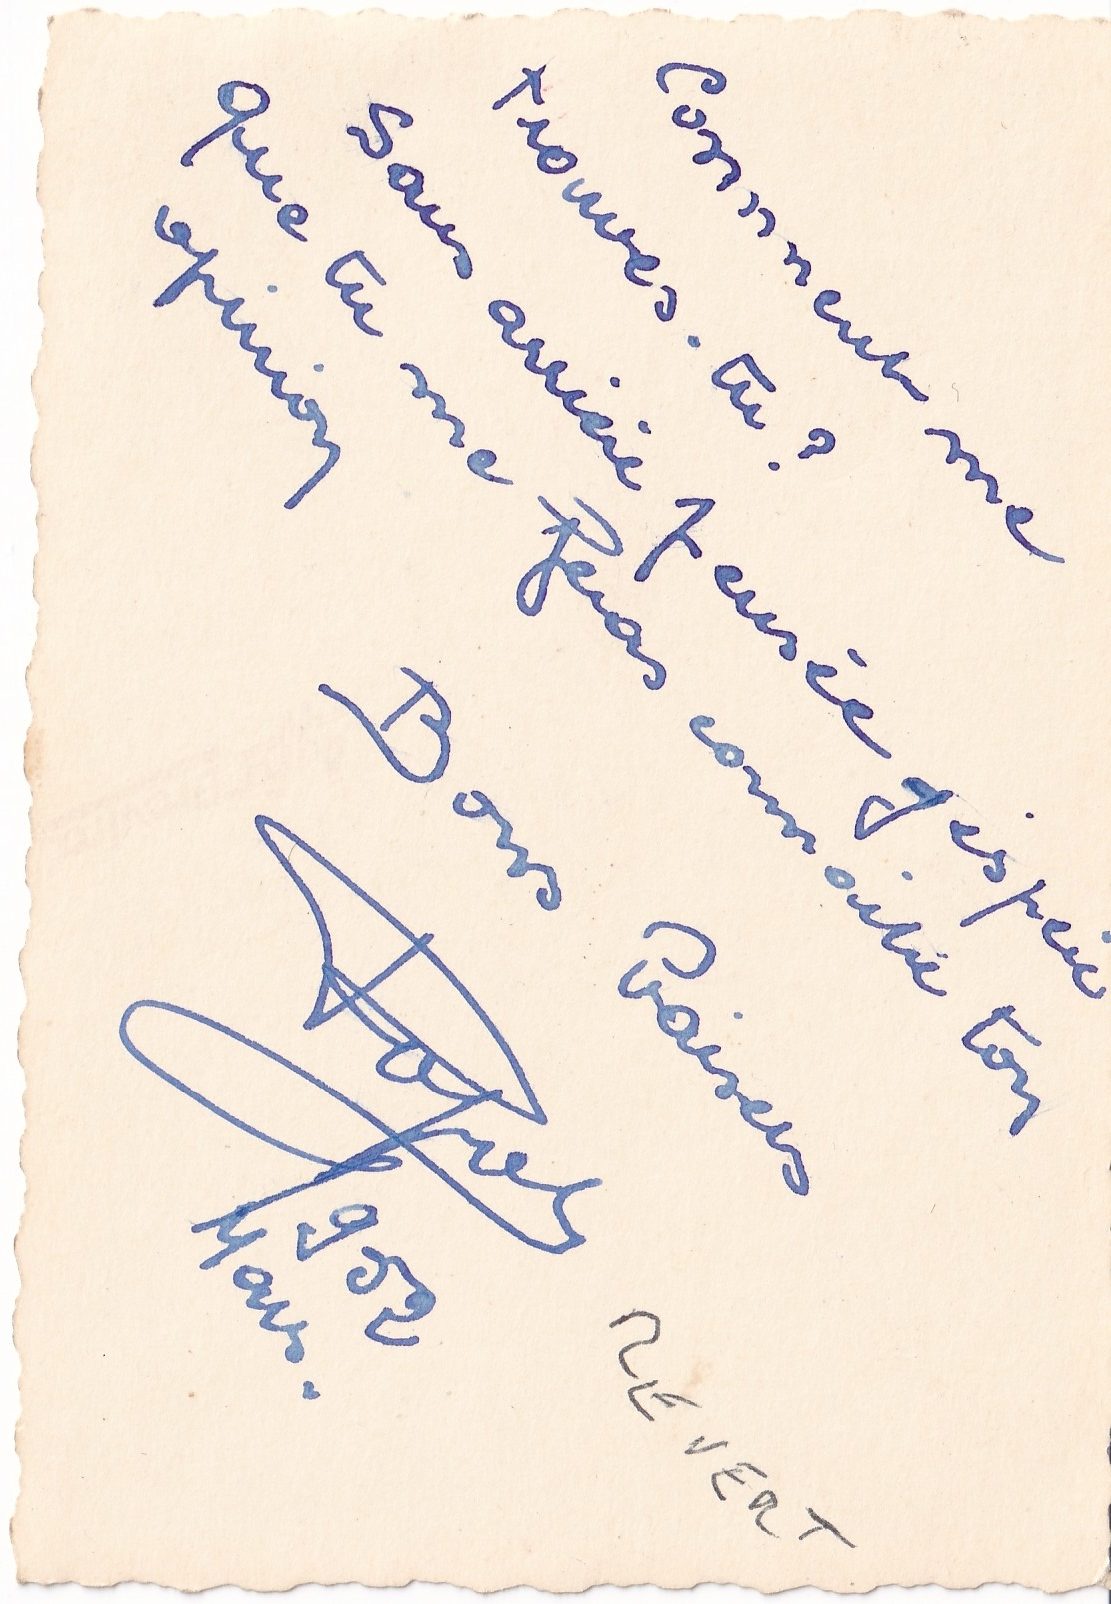 Comment me
trouves-tu?
Sans arrière pensée j'espère
que tu me feras connaitre ton
opinion
Bons Baisers
952
Mars.
REVERT